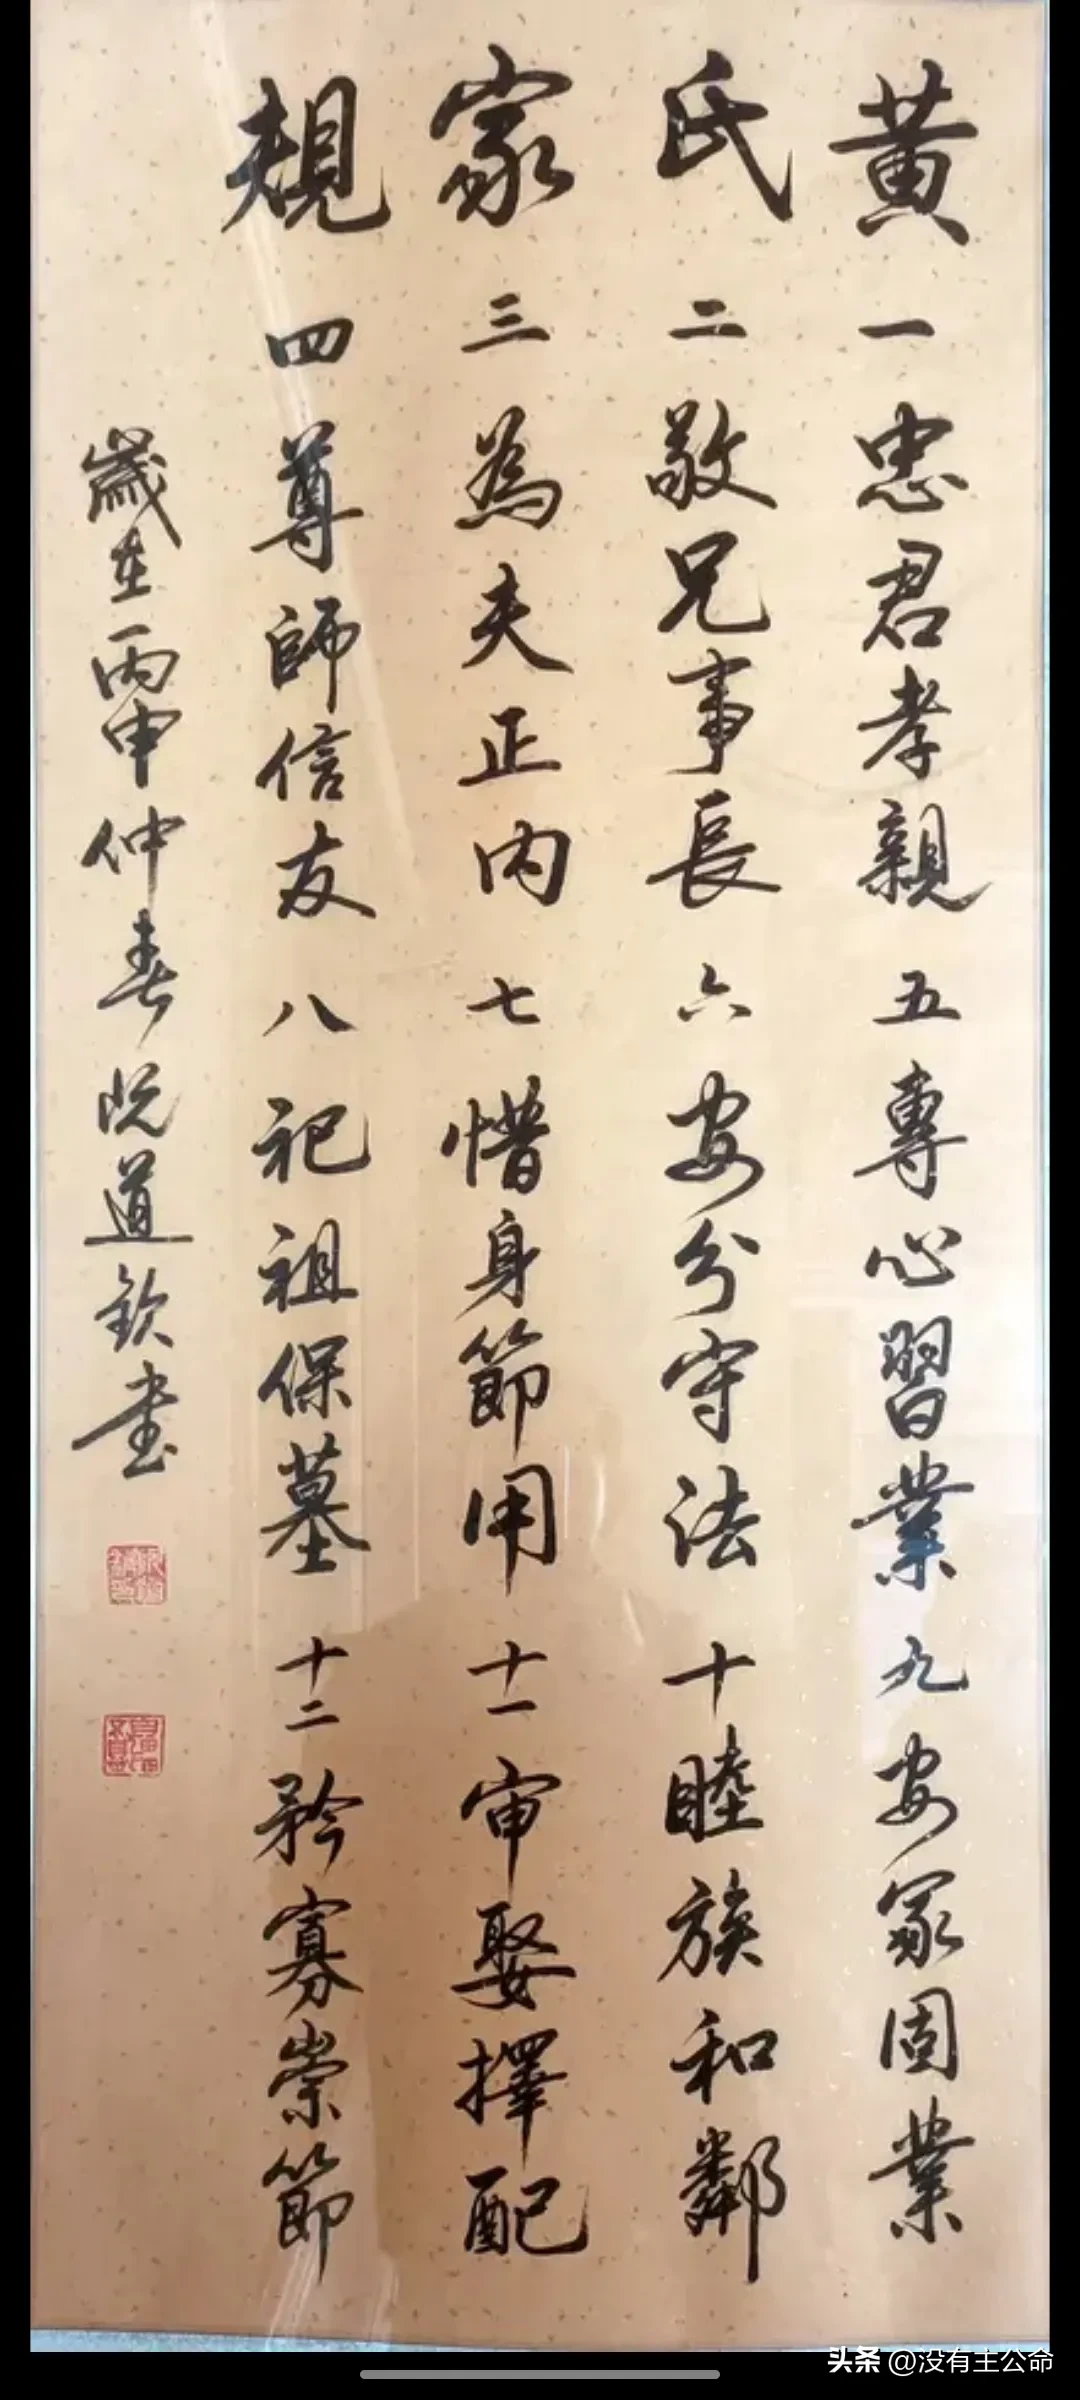 黄氏家規
一忠君孝親
二敬兄事長
三為夫正内
四尊師信友
五專心習業
六安分守法
七惜身節用
八祀祖保墓
九安家固業
十睦族和鄰
十一审娶擇配
十二矜寡崇節
歲在丙申仲春阮道欽書
头条 @没有主公命